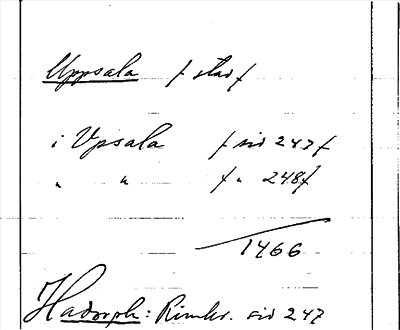 Uppsala / stad /
i Upsala / sid 247 /
" " / " 248 /
1466
Hadorph: Rimkr. sid 247